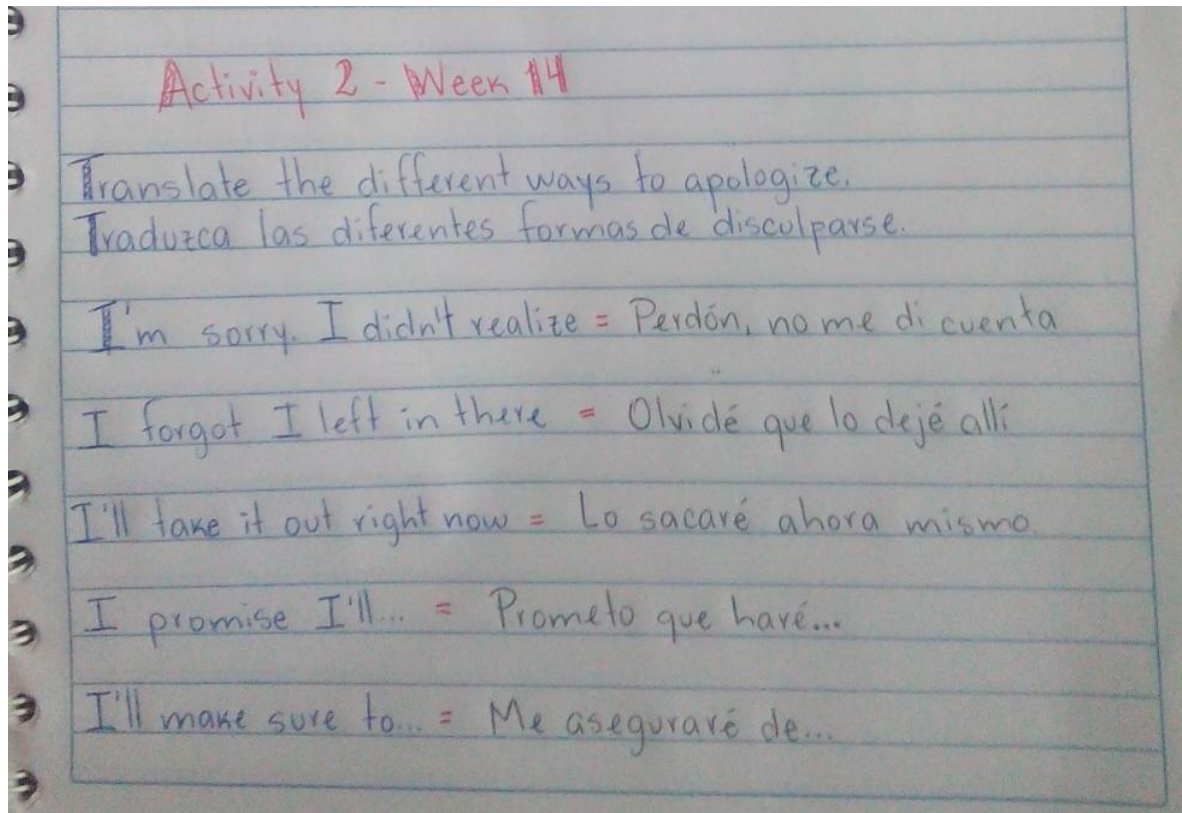 Activity 2 - Week 14
Translate the different ways to apologize.
Traduzca las diferentes formas de disculparse.
I'm sorry. I didn't realize = Perdón, no me di cuenta
I forgot I left in there = Olvidé que lo dejé allí
I'll take it out right now = Lo sacaré ahora mismo
I promise I'll... = Prometo que haré...
I'll make sure to... = Me aseguraré de...